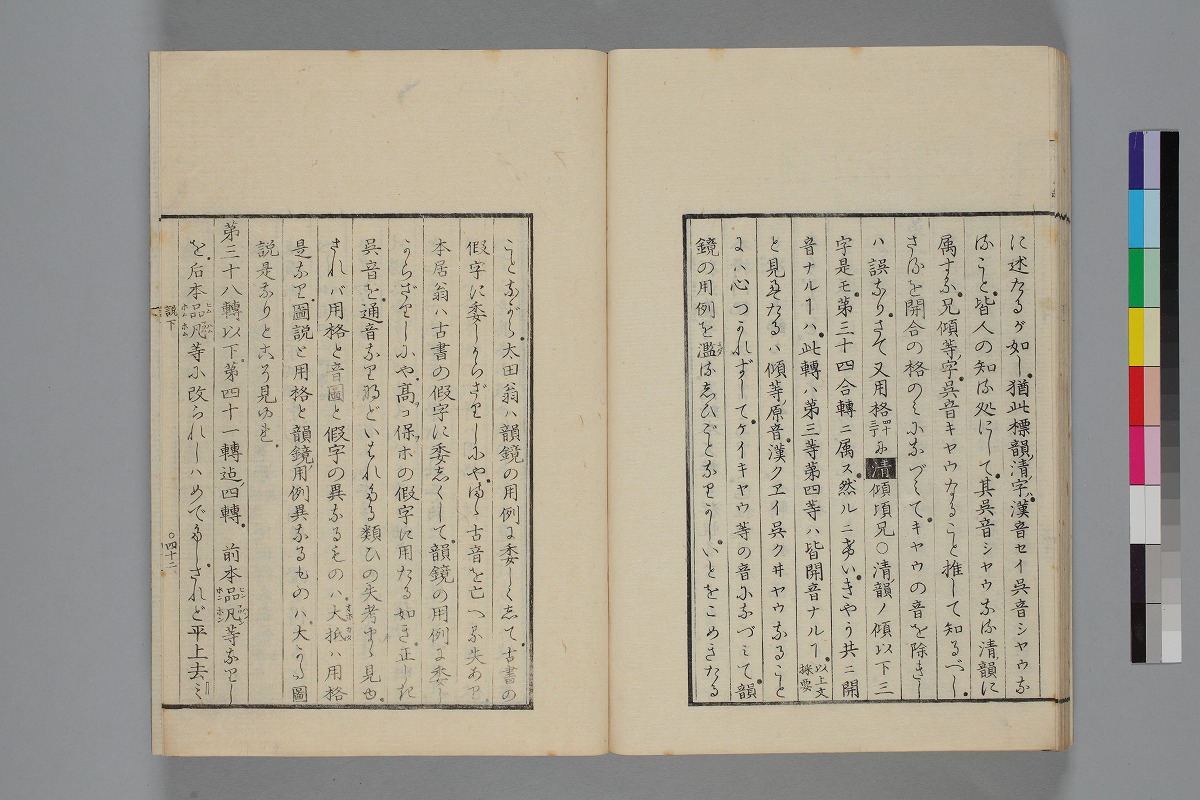 に述たるが如し猶此標韻清字漢音セイ呉音シヤウな
ること皆人の知る処にして其呉音シヤウなる清韻に
属する兄傾等字呉音キヤウなること推して知るべし
さるを開合の格のみになづみてキヤウの音を除きし
ハ誤なりさて又用格 清 傾頃兄○清韻ノ傾以下三
字是モ第三十四合轉ニ属ス然ルニけいきやう共ニ開
音ナルヿハ此轉ハ第三等第四等ハ皆開音ナルヿ以上文採要
と見えたるハ傾等原音漢クヱイ呉クヰヤウなること
にハ心つかれずしてケイキヤウ等の音になづみて韻
鏡の用例を濫るしひごとなりかしいとをこめきたる
ことながら太田翁ハ韻鏡の用例に委しくして古書の
假字に委しからざりしにやゆゑ古音を亡へる失あり
本居翁ハ古書の假字に委しくして韻鏡の用例に委し
からざりしにや高コ保ホの假字に用たる如き正しき
呉音を通音なりなどいはれたる類ひの失考まゝ見ゆ
されバ用格と音圖と假字の異なるものハ大抵ハ用格
是なり圖説と用格と韻鏡用例異なるものハ大かた圖
説是なりとこそ見ゆれ
第三十八轉以下第四十一轉迠四轉 前本品凡等なりし
を后本品凡等に改られしハめでたしされど平上去ミ
説下
○四十二